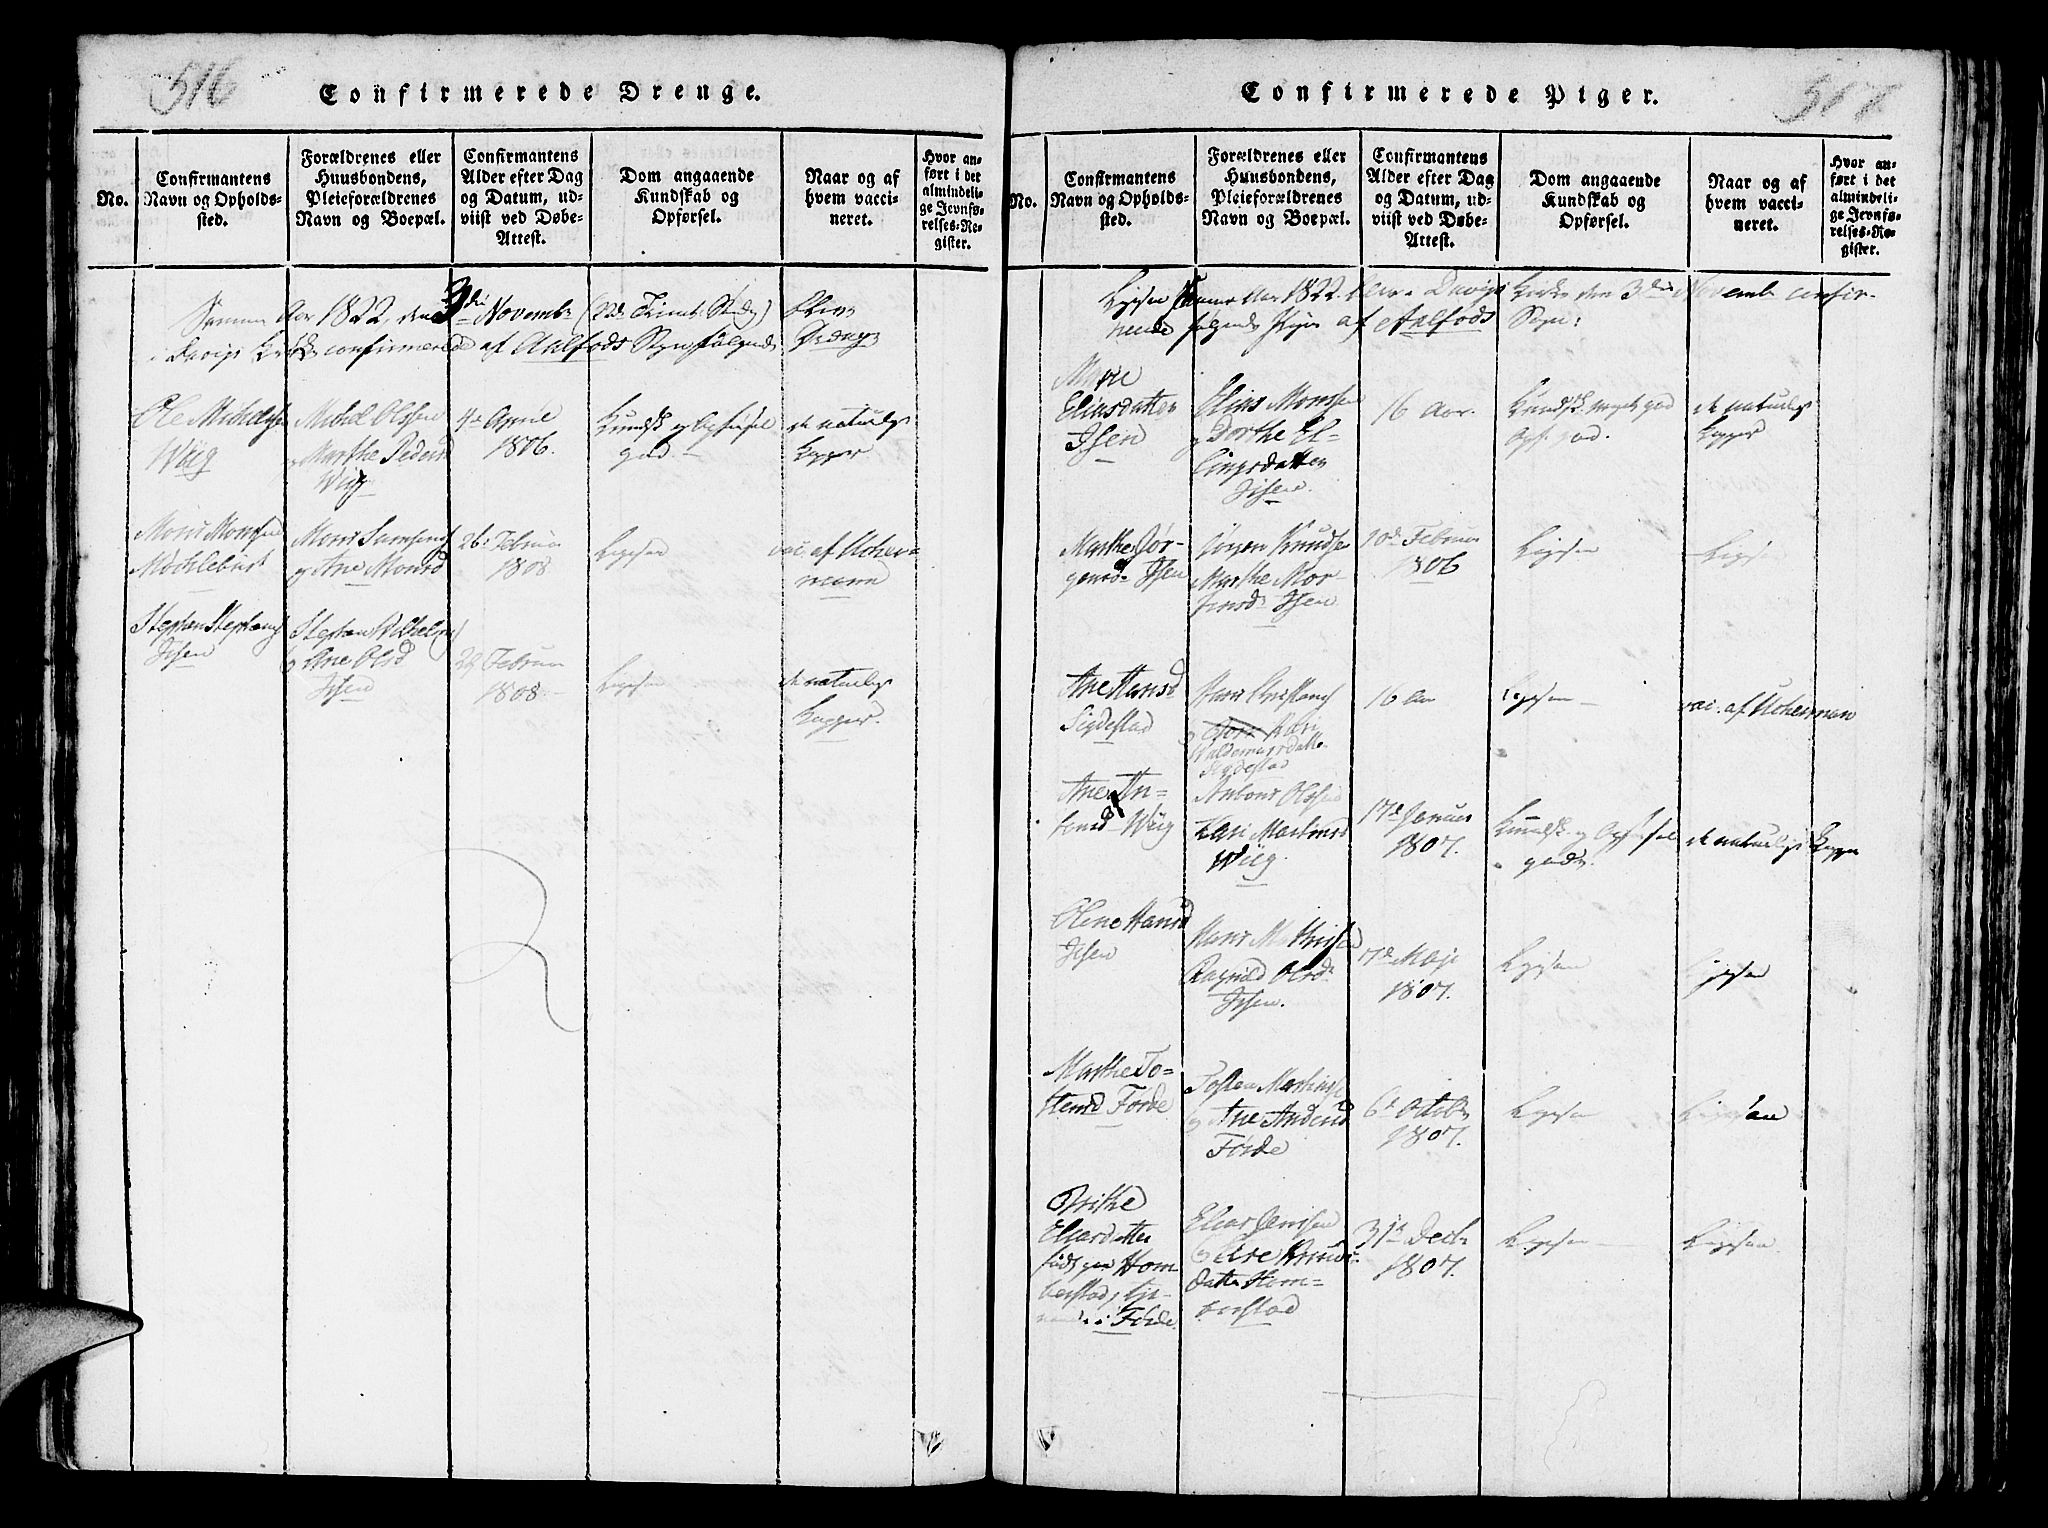 516
Confirmerede Drenge.
No.
Confirmantens
Navn og Opholds-
sted.
Forældrenes eller
Huusbondens,
Pleieforældrenes
Navn og Boepæl.
Confirmantens
Alder efter Dag
og Datum, ud-
viist ved Døbe-
Attest.
Dom angaaende
Kundskab og
Opførsel.
Naar og af
hvem vacci-
neret.
Hvor an-
ført i det
almindeli-
ge Jevnfø-
relses-Re-
gister.
Samme Aar 1822, den 3die Novembr
i Davigs Kirke confirmerede af Aalfods Sogn følgende Drenge
Ole Michelsen
Wiig
Michel Olssen
og Marthe Pedersd
Wiig
4de April
1806.
Kundsk. og Opførsel
god.
de naturlige
Kopper
Mons Monssen
Myklebust
Mons Samsens
og Ane Monsd
26de Februar
1808
Ligesaa
vac. af Uchermann
Stephen Stephens
Isen
Stephen Wilhelms
og Ane Olsd
Isen
29 Februar
1808.
Ligesaa
de naturlige
Kopper.
517
Confirmerede Piger.
No.
Confirmantens
Navn og Opholds-
sted.
Forældrenes eller
Huusbondens,
Pleieforældrenes
Navn og Boepæl.
Confirmantens
Alder efter Dag
og Datum, ud-
viist ved Døbe-
Attest.
Dom angaaende
Kundskab og
Opførsel.
Naar og af
hvem vacci-
neret.
Hvor an-
ført i det
almindeli-
ge Jevnfø-
relses-Re-
gister.
Ligesaa samme Aar 1822 blev i Davigs Kirke den 3die Novembr confir-
merede følgende Piger af Aalfods Sogn:
Marie
Eliasdatter
Isen
Elias Monsen
og Dorthe El-
lingsdatter
Isen.
16 Aar.
Kundsk. meget god
Opf. god.
de naturlige
Kopper
Marthe Jør-
gensd. Isen
Jørgen Knudsen
Marthe Mor-
tensd. Isen
10de Februar
1806
Ligesaa
Ligs
Ane Hansd
Sigdestad
Hans Christens
og Kari
Waldemarsdatter
Sigdestad
16 Aar
Ligesaa
vac. af Uchermann
Ane An-
tonsd Wiig
Antons Olssen
Kari Martinsd
Wiig.
17de Januar
1807.
Kundsk. og Opførsel
gode.
de naturlige Kopper
Olene Hansd
Isen
Hans Mathisen
Ragnild Olsd.
Isen.
17de Maji
1807.
Ligesaa
Ligesaa
Marthe To-
stensd Førde
Tosten Martinsen
og Ane Andersd
Førde
6te Octobr
1807.
Ligesaa
Ligesaa
Brithe
Elsasdatter
født paa Hom-
berstad, tje-
nende i Førde
Elias Jenssen
og Ane Knuds-
datter Hom-
berstad
31te Decbr
1807.
Ligesaa
Ligesaa